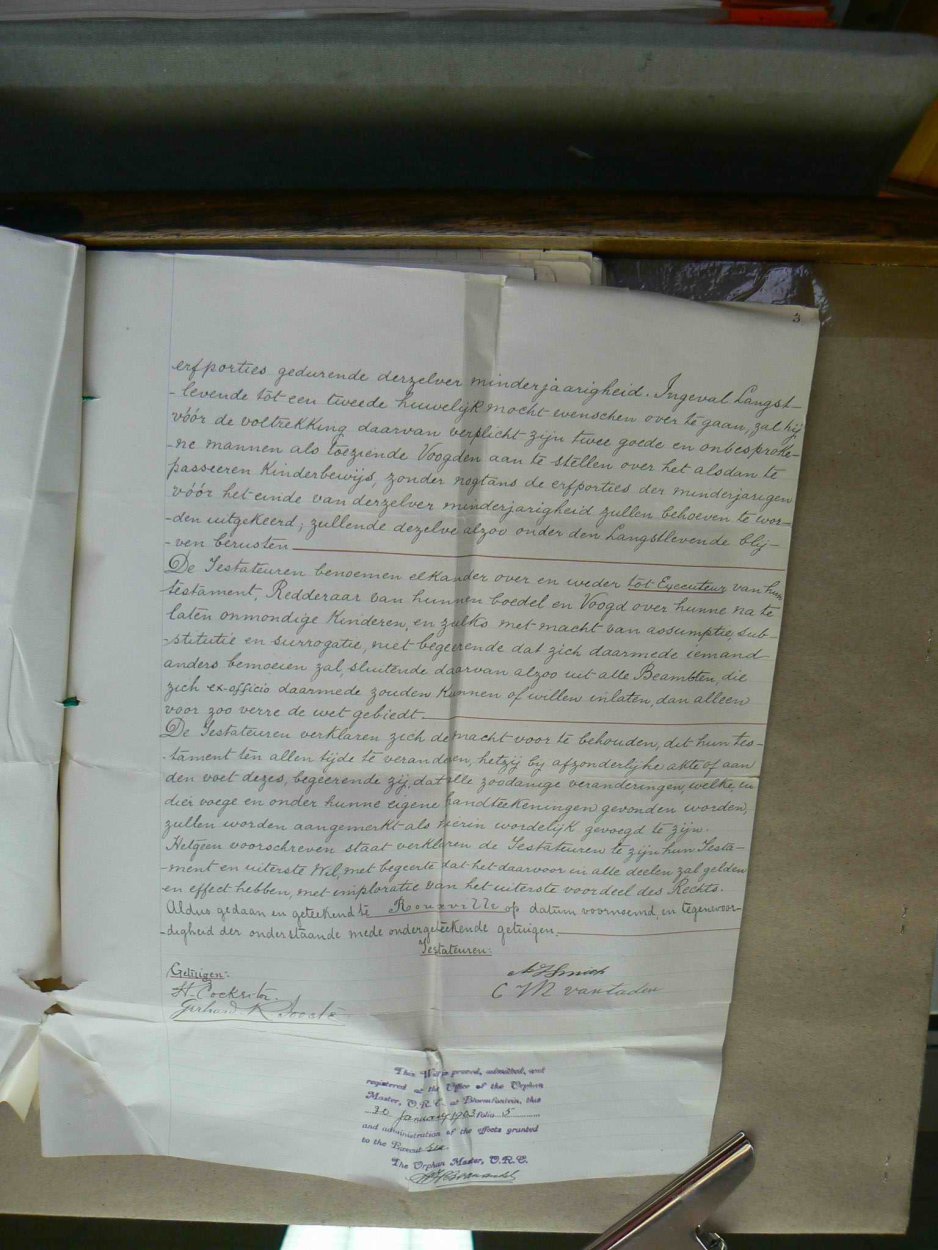 3.
erfporties gedurende derzelver minderjaarigheid. Ingeval Langst-
-levende tot een tweede huwelijk mocht wenschen over te gaan, zal hij
vóór de voltrekking daarvan verplicht zijn twee goede en onbesproke-
-ne mannen als toeziende Voogden aan te stellen over het alsdan te
passeeren Kinderbewijs, zonder nogtans de erfporties der minderjarigen
vóór het einde van derzelver minderjarigheid zullen behoeven te wor-
-den uitgekeerd; zullende dezelve alzoo onder den Langstlevende blij-
-ven berusten
De Testateuren benoemen elkander over en weder tot Executeur van hun
testament, Redderaar van hunnen boedel en Voogd over hunne na te
laten onmondige Kinderen, en zulks met macht van assumptie, sub-
-stitutie en surrogatie, niet begeerende dat zich daarmede iemand
anders bemoeien zal, sluitende daarvan alzoo uit alle Beambten, die
zich ex-officio daarmede zouden kunnen of willen inlaten, dan alleen
voor zoo verre de wet gebiedt.
De Testateuren verklaren zich de macht voor te behouden, dit hun tes-
-tament ten allen tijde te veranderen, hetzij by afzonderlijke akte of aan
den voet dezes, begeerende zij, dat alle zoodanige veranderingen, welke, in
dier voege en onder hunne eigene handteekeningen gevonden worden,
zullen worden aangemerkt als hierin wordelijk gevoegd te zijn.
Hetgeen voorschreven staat verklaren de Testateuren te zijn hun Testa-
-ment en uiterste Wil, met begeerte dat het daarvoor in alle deelen zal gelden
en effect hebben, met imploratie van het uiterste voordeel des Rechts.
Aldus gedaan en geteekend te Rouxville op datum voornoemd, in tegenwoor-
-digheid der onderstaande mede ondergeteekende getuigen.
Testateuren:
Getuigen:
Smith
H. Cockritor.
C M van
Gerhard K
This Will is proved, admitted, and
registered at the Office of the Orphan
Master, O.R.C. at Bloemfontein, this
30 January 1903 folio 5
and administration of the effects granted
to the Executor
The Orphan Master, O.R.C.